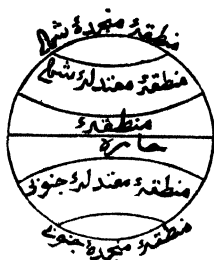 منطقهٔ منجمدهٔ شمالی
منطقهٔ معتدلهٔ شمالی
منطقهٔ
حاره
منطقهٔ معتدلهٔ جنوبی
منطقهٔ منجمدهٔ جنوبی